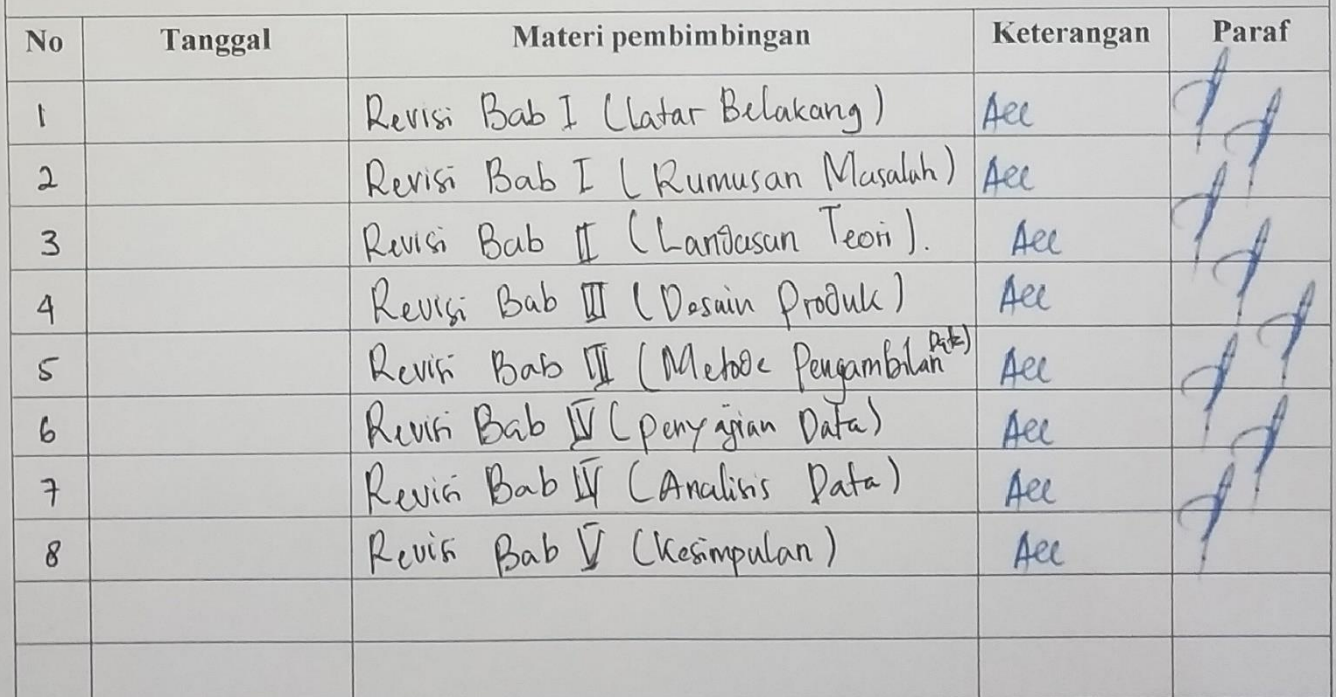 No Tanggal Materi pembimbingan Keterangan Paraf
1 Revisi Bab I (Latar Belakang) Acc
2 Revisi Bab I (Rumusan Masalah) Acc
3 Revisi Bab II (Landasan Teori). Acc
4 Revisi Bab III (Desain Produk) Acc
5 Revisi Bab III (Metode Pengambilan Data) Acc
6 Revisi Bab IV (Penyajian Data) Acc
7 Revisi Bab IV (Analisis Data) Acc
8 Revisi Bab V (Kesimpulan) Acc